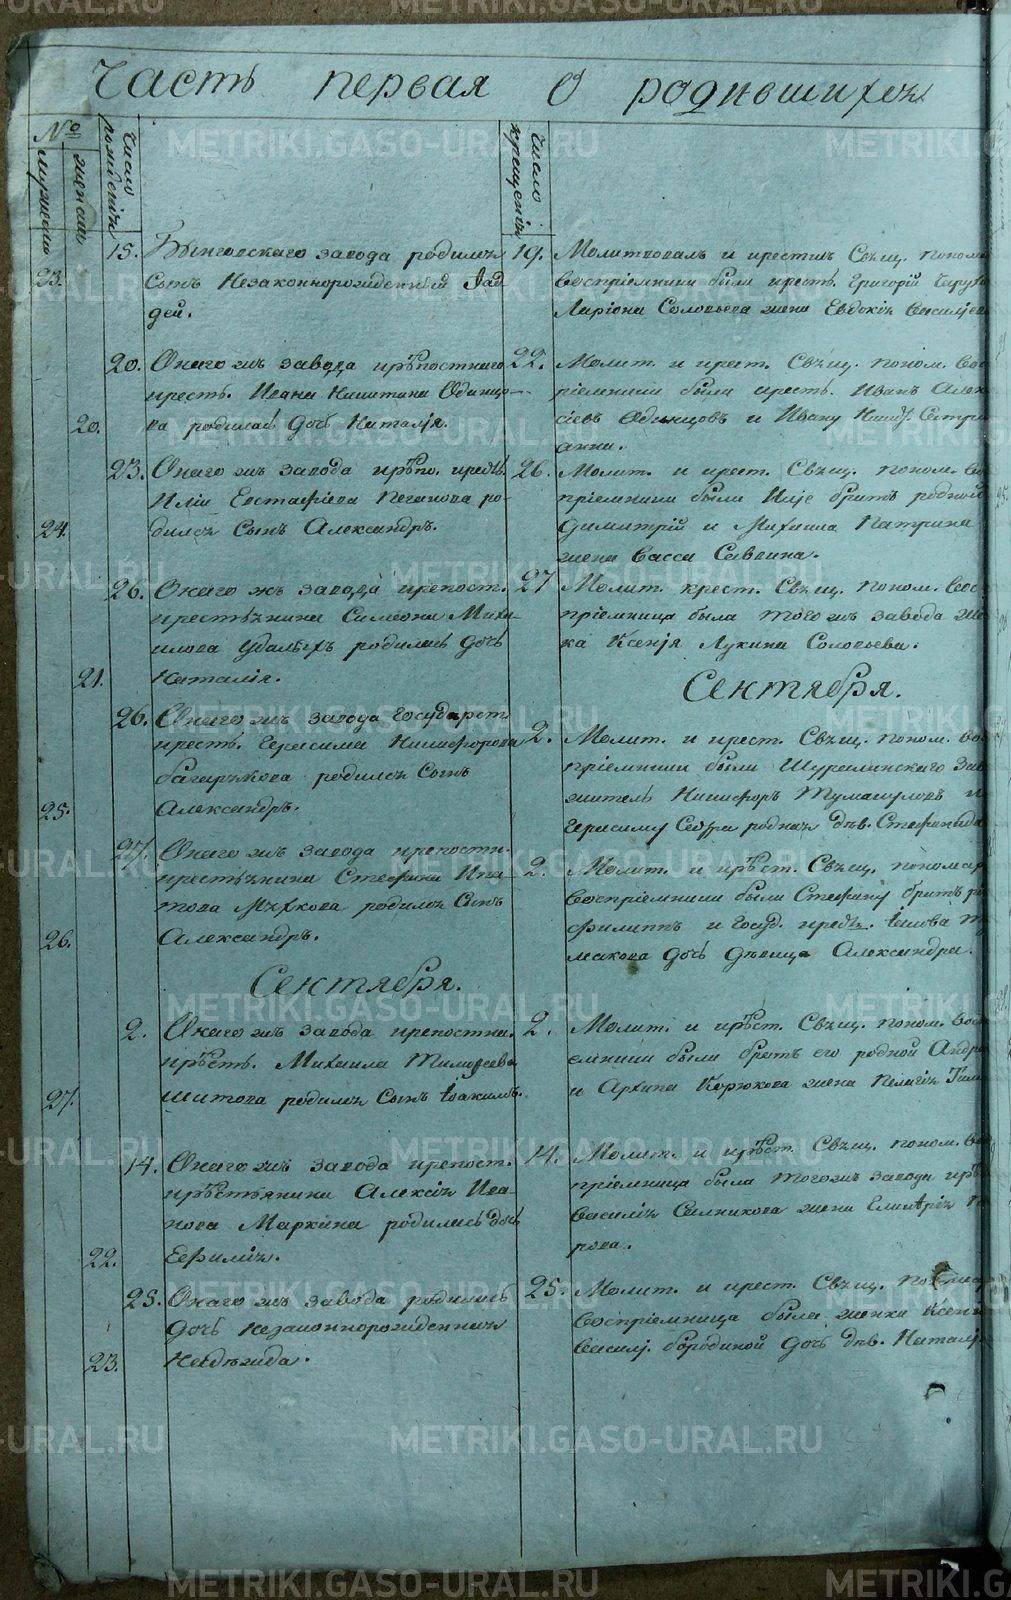 Часть первая о родившихся
№
мужеска
женска
число рождения
число крещения
15. Быньговскаго завода родился
23.
сынъ незаконнорожденный Фад
дей.
19. Молитвовалъ и крестилъ Свящ. поном
воспріемники были крест. Григорій
Ларіона Соловьева жена Евдокія Василье
20. Онаго жъ завода крѣпостнаго
крест. Ивана Никитина Одинцо-
20.
ва родилась дочь Наталія.
22. Молит. и крест. Свящ. поном. вос
ріемники были крест. Иванъ Алек
сіевъ Одинцовъ и Ивану Никит. сестра
анна.
23. Онаго жъ завода крѣпо. крест.
Иліи Евстафіева Пеганова ро-
24.
дился сынъ Александръ.
26. Молит. и крест. Свящ. поном. во
пріемники были Иліе братъ родной
Димитрій и Михаила Патрина
жена Васса Саввина.
26. Онаго жъ завода крепост.
крестьянина Симеона Миха-
илова Удалыхъ родилась дочь
21.
Наталія.
27 Молит. крест. Свящ. поном. вос
пріемница была того жъ завода же
ка Ксенія Лукина Соловьева.
Сентября.
26. Онаго жъ завода Государст.
крест. Герасима Никифорова
багарякова родился сынъ
25.
Александръ.
2. Молит. и крест. Свящ. поном. во
пріемники были Шуралинскаго зав
житель Никифоръ Тумашуловъ и
Герасиму сестра родная дѣв. Стефанида
27. Онаго жъ завода крепостн.
крестьянина Стефана Ипа-
това Мѣхкова родился сынъ
26.
Александръ.
2. Молит. и крѣст. Свящ. пономар
воспріемники были Стефану братъ ро
филиппъ и Госуд. крест. Іовлова
макова дочь дѣвица Александра.
Сентября.
2. Онаго жъ завода крепостна.
крѣсть. Михаила Тимофеева
27.
шитова родился сынъ Іоакимъ.
2. Молит. и крѣст. Свящ. поном. вос
емники были братъ его родной Андре
и Архипа Корюкова жена Пелагія Тим
14. Онаго жъ завода крепост.
крѣстьянина Алексія Ива-
нова Маркина родилась дочь
22.
Евфимія.
14. Молит. и крѣст. Свящ. поном. во
пріемница была тогожъ завода крѣ
василія Сальникова жена Гликѣрія
рова.
25. Онаго жъ завода родилась
дочь незаконнорожденная
23.
Надѣжида.
25. Молит. и крест. Свящ. пономар
воспріемница была женки Ксени
василь. бородиной дочь дѣв. Наталь